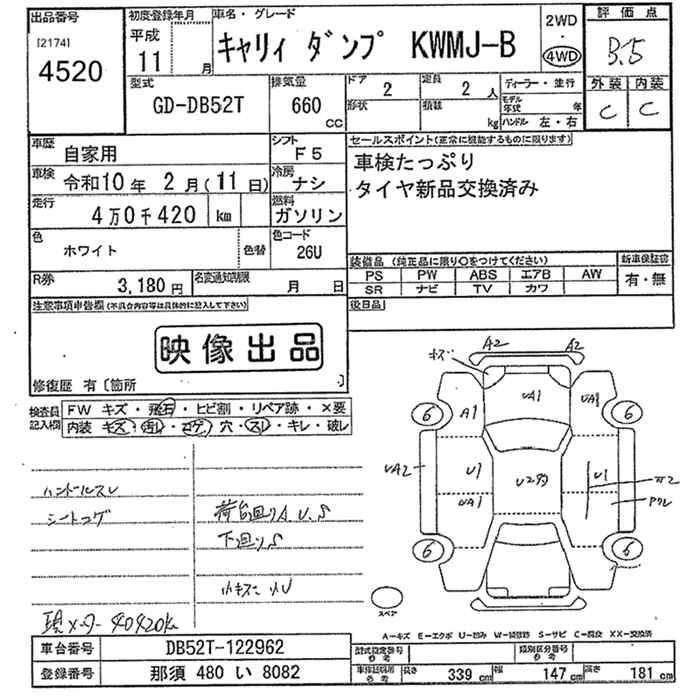 出品番号
[2174]
4520
初度登録年月
平成
11 月
車名・グレード
キャリィ ダンプ KWMJ-B
2WD
・
4WD
評価点
B.5
外装 内装
C C
型式
GD-DB52T
排気量
660
cc
ドア
2
定員
2 人
形状
積載
kg
ディーラー・並行
モデル年式 年
ハンドル 左・右
車歴
自家用
シフト
F5
車検
令和10年 2月(11日)
冷房
ナシ
走行
4万0千420 km
燃料
ガソリン
色
ホワイト
色替
色コード
26U
R券
3,180円
名変通知期限
月 日
セールスポイント(正常に機能するものに限ります)
車検たっぷり
タイヤ新品交換済み
装備品 (純正品に限り○をつけてください)
PS PW ABS エアB AW
SR ナビ TV カワ
新車保証書
有・無
後日品
注意事項申告欄(不具合内容等は具体的に記入して下さい)
映像出品
修復歴 有〔箇所 〕
検査員記入欄
FW キズ・飛石・ヒビ割・リペア跡・×要
内装 キズ・汚レ・コゲ・穴・スレ・キレ・破レ
ハンドルスレ
シートコゲ
荷台回りA、U、S
下回りS
小キズ 小U
現メーター 40420k
A2 A2
キズ
UA1
A1
UA1
6 6
UA2
U1
U2
U1
UA1
6 6
スペア
A-キズ E-エクボ U-凹み W-補修跡 S-サビ C-腐食 XX-交換済
車台番号
DB52T-122962
登録番号
那須 480 い 8082
型式指定番号
参考
類別区分番号
参考
長さ 339 cm
幅 147 cm
高さ 181 cm